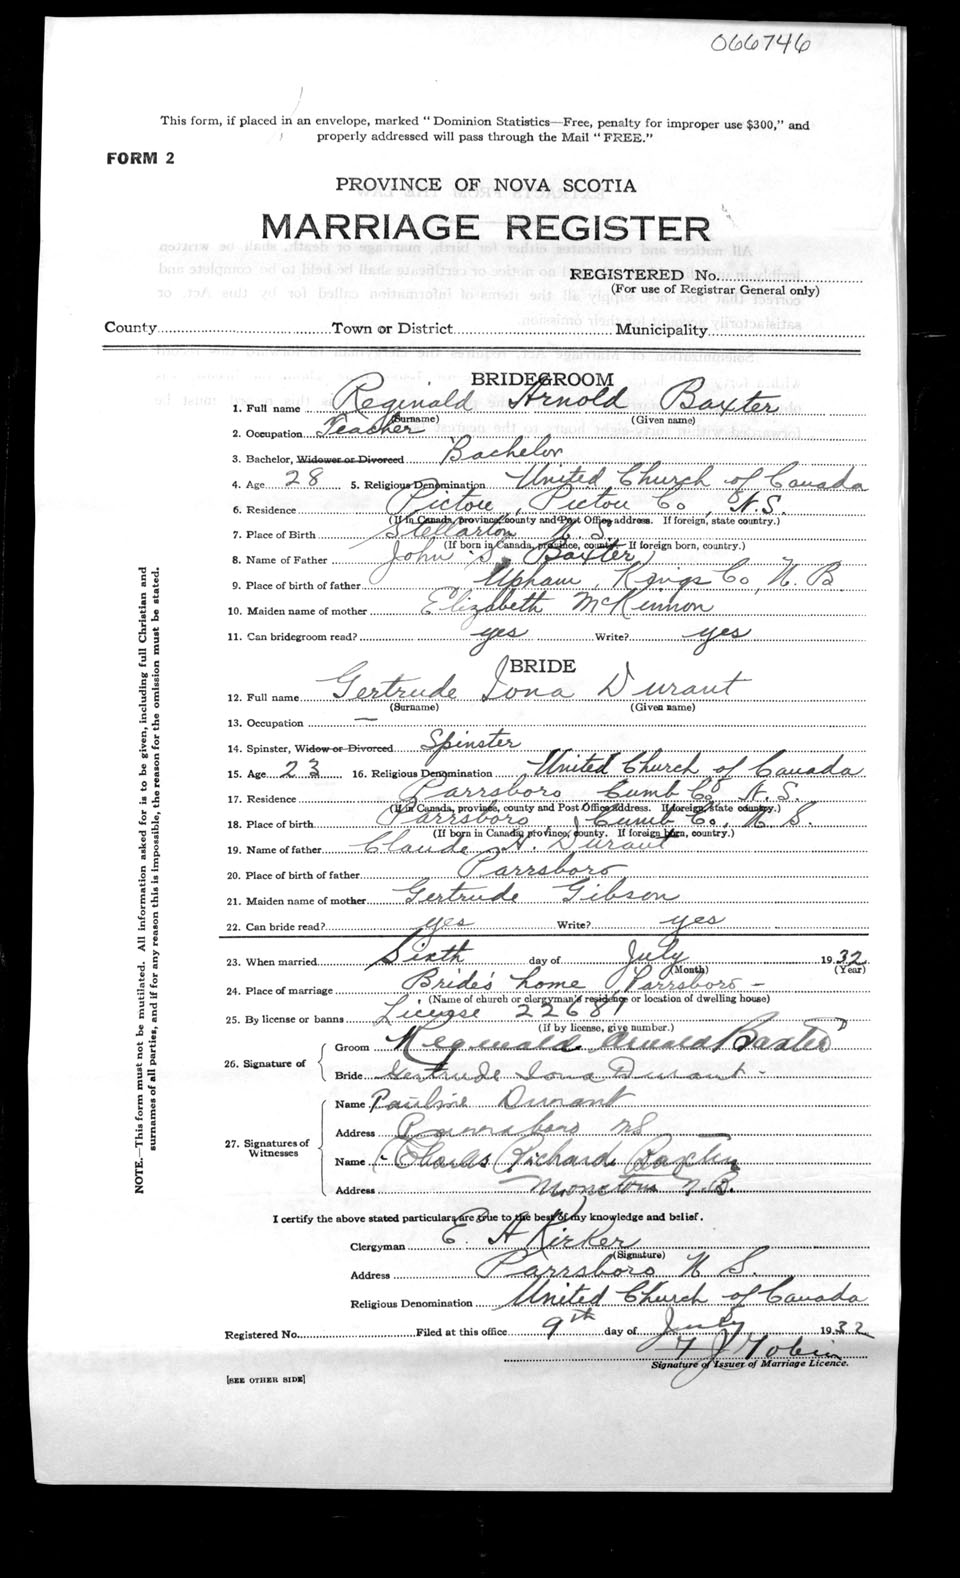 066746
This form, if placed in an envelope, marked "Dominion Statistics—Free, penalty for improper use $300," and
properly addressed will pass through the Mail "FREE."
FORM 2
PROVINCE OF NOVA SCOTIA
MARRIAGE REGISTER
REGISTERED No.
(For use of Registrar General only)
County Town or District Municipality
BRIDEGROOM
1. Full name Reginald Arnold Baxter
(Surname) (Given name)
2. Occupation Teacher
3. Bachelor, Widower or Divorced Bachelor
4. Age 28 5. Religious Denomination United Church of Canada
6. Residence Pictou, Pictou Co, N.S.
(If in Canada, province, county and Post Office address. If foreign, state country.)
7. Place of Birth Stellarton N.S.
(If born in Canada, province, county. If foreign born, country.)
8. Name of Father John S. Baxter
9. Place of birth of father Upham, Kings Co, N.B.
10. Maiden name of mother Elizabeth McKinnon
11. Can bridegroom read? yes Write? yes
BRIDE
12. Full name Gertrude Iona Durant
(Surname) (Given name)
13. Occupation —
14. Spinster, Widow or Divorced Spinster
15. Age 23 16. Religious Denomination United Church of Canada
17. Residence Parrsboro Cumb Co N.S.
(If in Canada, province, county and Post Office address. If foreign, state country.)
18. Place of birth Parrsboro, Cumb Co, N.S.
(If born in Canada, province, county. If foreign born, country.)
19. Name of father Claude H. Durant
20. Place of birth of father Parrsboro
21. Maiden name of mother Gertrude Gibson
22. Can bride read? yes Write? yes
23. When married Sixth day of July 1932
(Month) (Year)
24. Place of marriage Bride's home Parrsboro –
(Name of church or clergyman's residence or location of dwelling house)
25. By license or banns License 22681
(if by license, give number.)
26. Signature of
Groom Reginald Arnold Baxter
Bride Gertrude Iona Durant -
27. Signatures of
Witnesses
Name Pauline Durant
Address Parrsboro NS
Name Charles Richard Baxter
Address Moncton N.B.
I certify the above stated particulars are true to the best of my knowledge and belief.
Clergyman E. A Kirker
(Signature)
Address Parrsboro N S.
Religious Denomination United Church of Canada
Registered No. Filed at this office 9th day of July 1932
F J Tobin
Signature of Issuer of Marriage Licence.
[SEE OTHER SIDE]
NOTE.—This form must not be mutilated. All information asked for is to be given, including full Christian and
surnames of all parties, and if for any reason this is impossible, the reason for the omission must be stated.